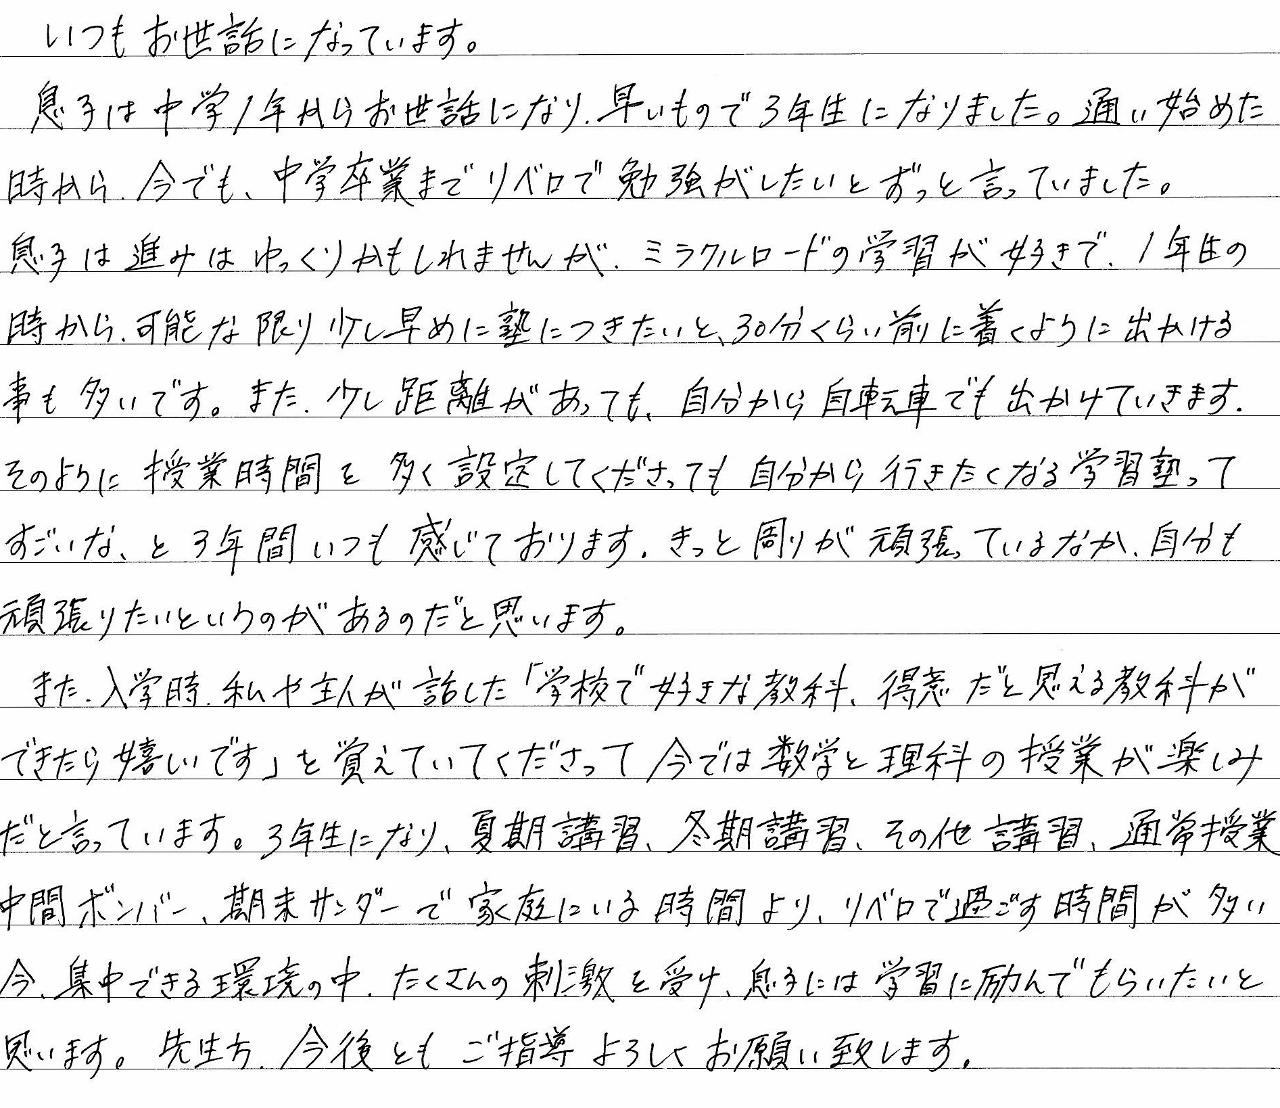 いつもお世話になっています。
息子は中学1年からお世話になり、早いもので3年生になりました。通い始めた
時から、今でも、中学卒業までリベロで勉強がしたいとずっと言っていました。
息子は進みはゆっくりかもしれませんが、ミラクルロードの学習が好きで、1年生の
時から、可能な限り少し早めに塾につきたいと、30分くらい前に着くように出かける
事も多いです。また、少し距離があっても、自分から自転車でも出かけていきます。
そのように授業時間を多く設定してくださっても自分から行きたくなる学習塾って
すごいな、と3年間いつも感じております。きっと周りが頑張っているなか、自分も
頑張りたいというのがあるのだと思います。
また、入学時、私や主人が話した「学校で好きな教科、得意だと思える教科が
できたら嬉しいです」を覚えていてくださって今では数学と理科の授業が楽しみ
だと言っています。3年生になり、夏期講習、冬期講習、その他講習、通常授業
中間ボンバー、期末サンダーで家庭にいる時間より、リベロで過ごす時間が多い
今、集中できる環境の中、たくさんの刺激を受け、息子には学習に励んでもらいたいと
思います。先生方、今後ともご指導よろしくお願い致します。